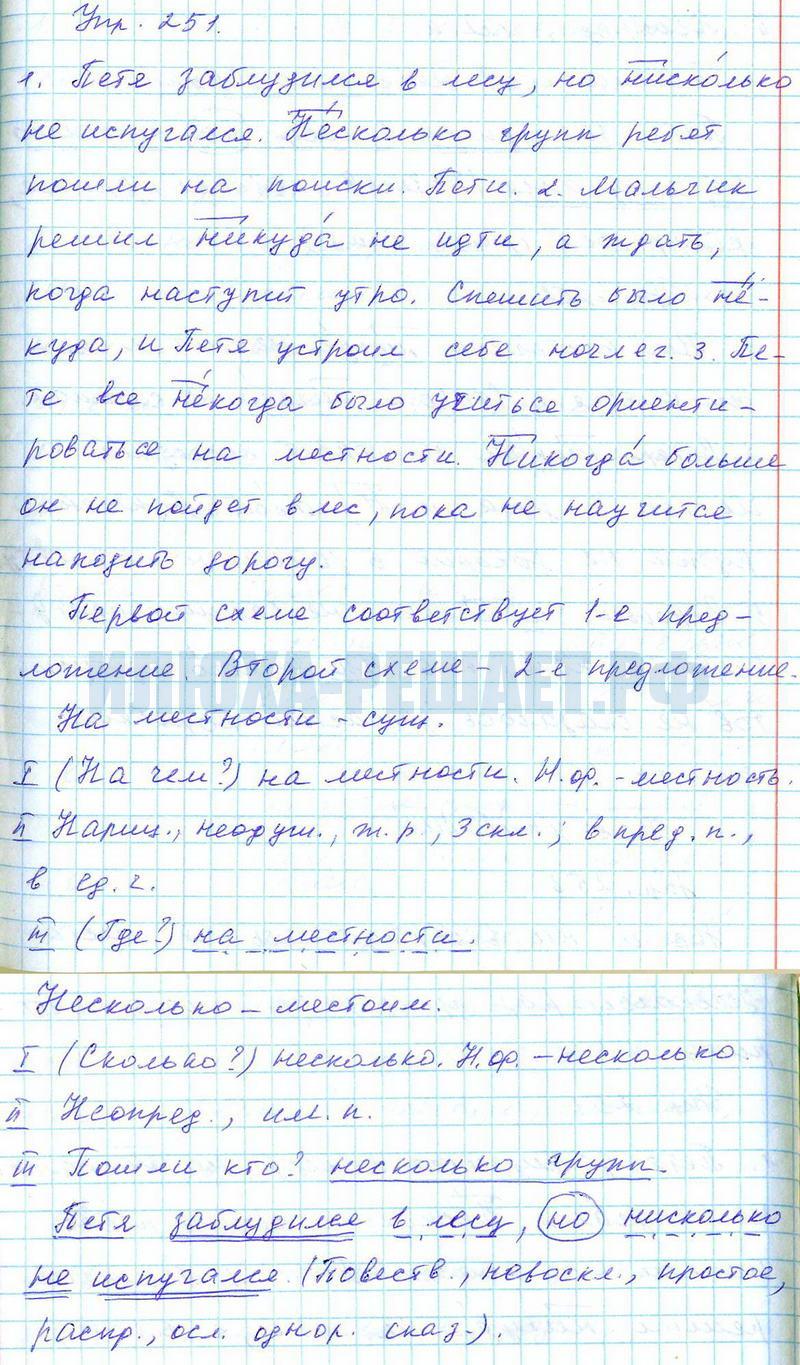 Упр. 251.
1. Петя заблудился в лесу, но ниско́лько
не испугался. Не́сколько групп ребят
пошли на поиски. Пети. 2. Мальчик
решил никуда́ не идти, а ждать,
когда наступит утро. Спешить было не́-
куда, и Петя устроил себе ночлег. 3. Пе-
те все не́когда было учиться ориенти-
роваться на местности. Никогда́ больше
он не пойдет в лес, пока не научится
находить дорогу.
Первой схеме соответствует 1-е пред-
ложение. Второй схеме - 2-е предложение.
ИЛЮХА-РЕШАЕТ.РФ
На местности - сущ.
I (На чем?) на местности. Н.ф. - местность.
II Нариц., неодуш., ж.р., 3 скл.; в пред. п.,
в ед. ч.
III (Где?) на местности.
Несколько - местоим.
I (Сколько?) несколько. Н.ф. - несколько.
II Неопред., им. п.
III Пошли кто? несколько групп.
Петя заблудился в лесу, но нисколько
не испугался. (Повеств., невоскл., простое,
распр., осл. однор. сказ.).